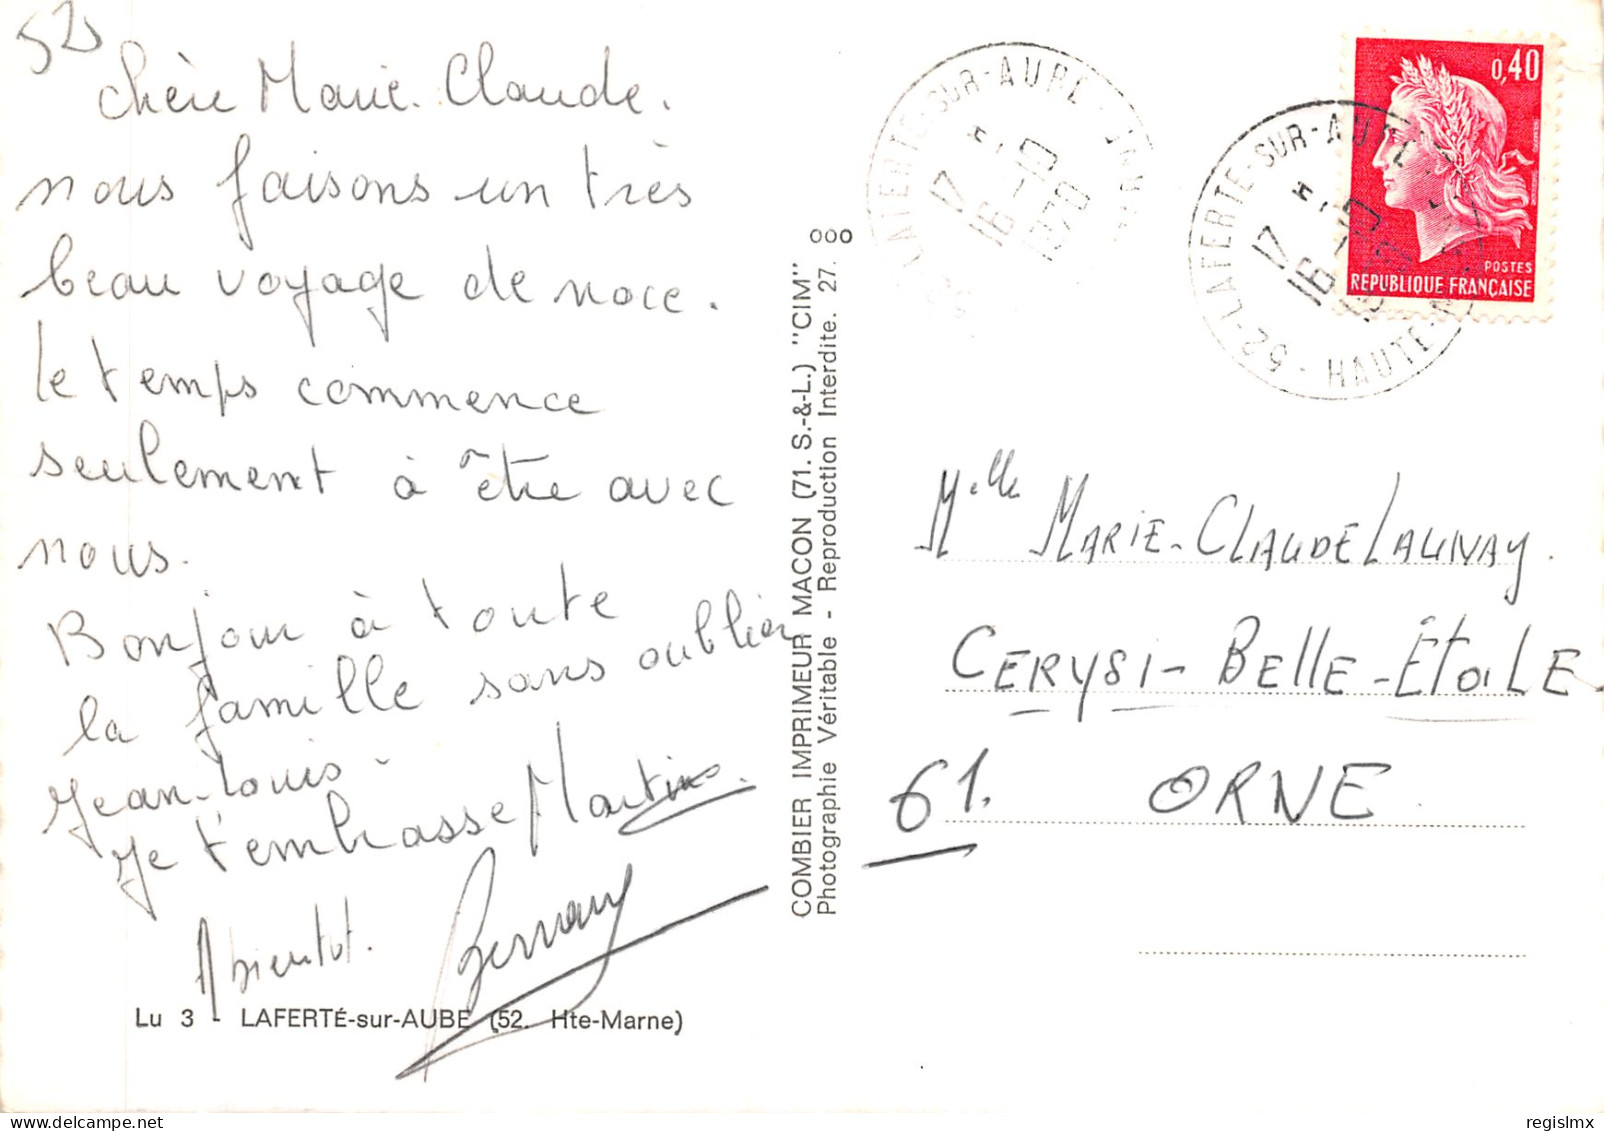 52
chère Marie-Claude.
nous faisons un très
beau voyage de noce.
le temps commence
seulement à être avec
nous.
Bonjour à toute
la famille sans oublier
Jean-Louis -
Je t'embrasse Martine.
A bientot.
Lu 3 - LAFERTÉ-sur-AUBE (52. Hte-Marne)
COMBIER IMPRIMEUR MACON (71. S.-&-L.) "CIM"
Photographie Véritable - Reproduction Interdite. 27. 000
LAFERTE-SUR-AUBE
17 H
16 -
1970
52-LAFERTE-SUR-AUBE
HAUTE-M
17 H
16 -
0,40
POSTES
REPUBLIQUE FRANÇAISE
Melle MARIE-CLAUDE LAUNAY.
CERYSI-BELLE-ÉTOILE
61. ORNE
regislmx